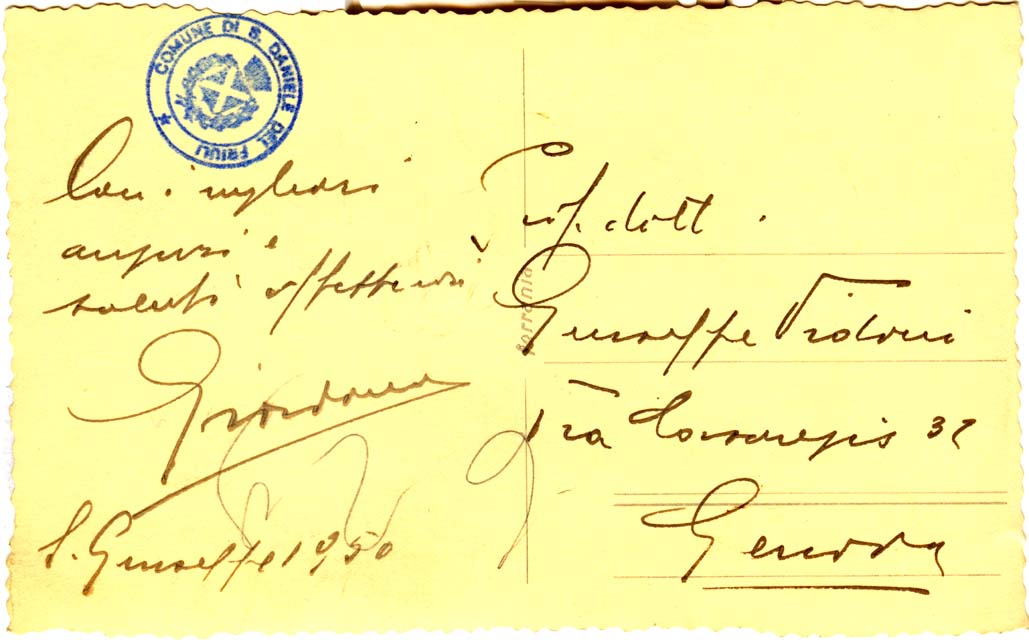 COMUNE DI S. DANIELE DEL FRIULI
Con i migliori
auguri e
saluti affettuosi
Giordano
S. Giuseppe 1950
Ferrania
Prof. dott.
Giuseppe Vidoni
Via Casaregis 32
Genova